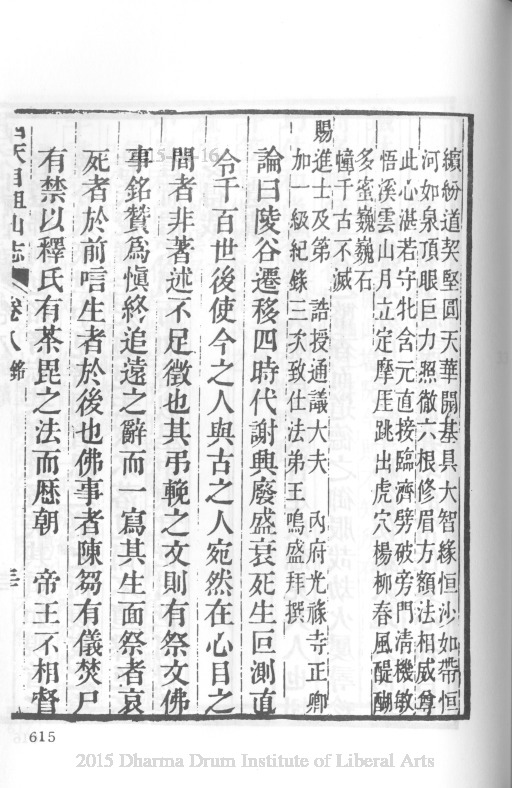 繽紛道契堅圓天華開基具大智緣恒沙如帶恒
河如泉頂眼巨力照徹六根修眉方額法相威尊
此心湛若守牝含元直接臨濟劈破旁門淸機敏
悟溪雲山月立定摩厓跳出虎穴楊柳春風醍醐
多蜜巍巍石
幢千古不滅
賜進士及第 誥授通議大夫 內府光祿寺正卿
加一級紀錄三次致仕法弟王鳴盛拜撰
論曰陵谷遷移四時代謝興廢盛衰死生叵測直
令千百世後使今之人與古之人宛然在心目之
間者非著述不足徵也其弔輓之文則有祭文佛
事銘贊爲愼終追遠之辭而一寫其生面祭者哀
死者於前唁生者於後也佛事者陳芻有儀焚尸
有禁以釋氏有茶毘之法而歷朝 帝王不相督
天目祖山志 卷八 銘
615
2015 Dharma Drum Institute of Liberal Arts